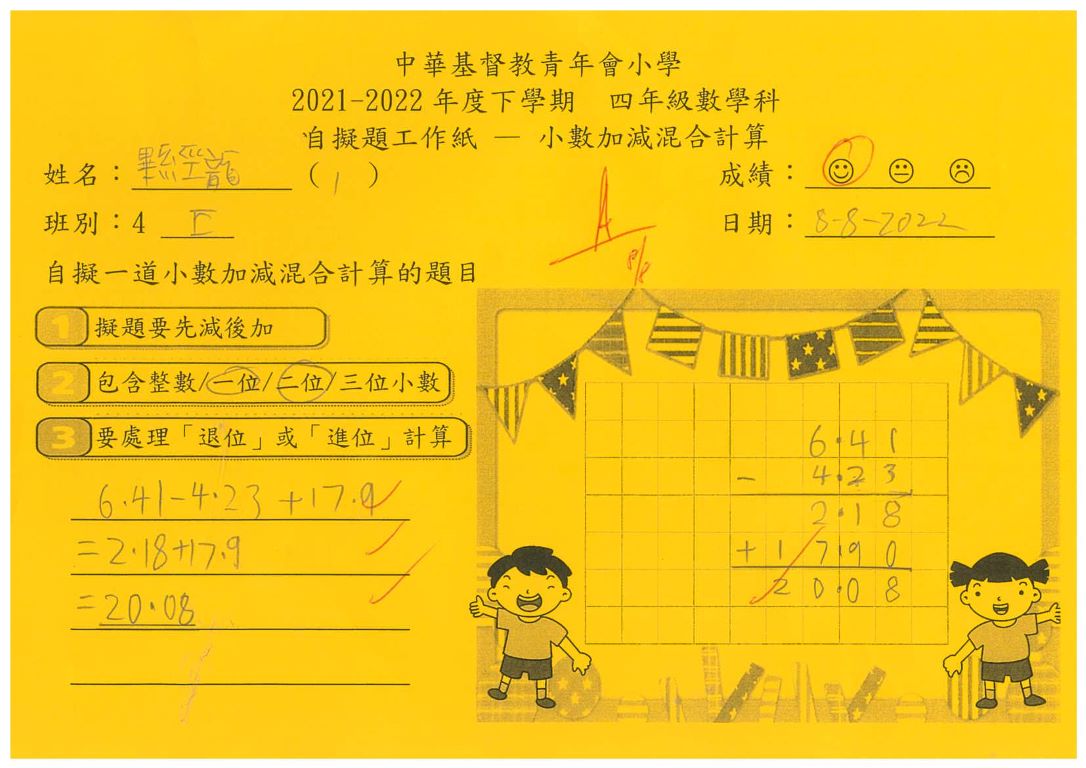 中華基督教青年會小學
2021-2022 年度下學期 四年級數學科
自擬題工作紙 — 小數加減混合計算
姓名： ( 1 ) 成績：
班別：4 E 日期：8-8-2022
A
8/8
自擬一道小數加減混合計算的題目
1 擬題要先減後加
2 包含整數/一位/二位/三位小數
3 要處理「退位」或「進位」計算
6.41-4.23+17.9
=2.18+17.9
=20.08
6.41
- 4.23
2.18
+ 17.90
20.08